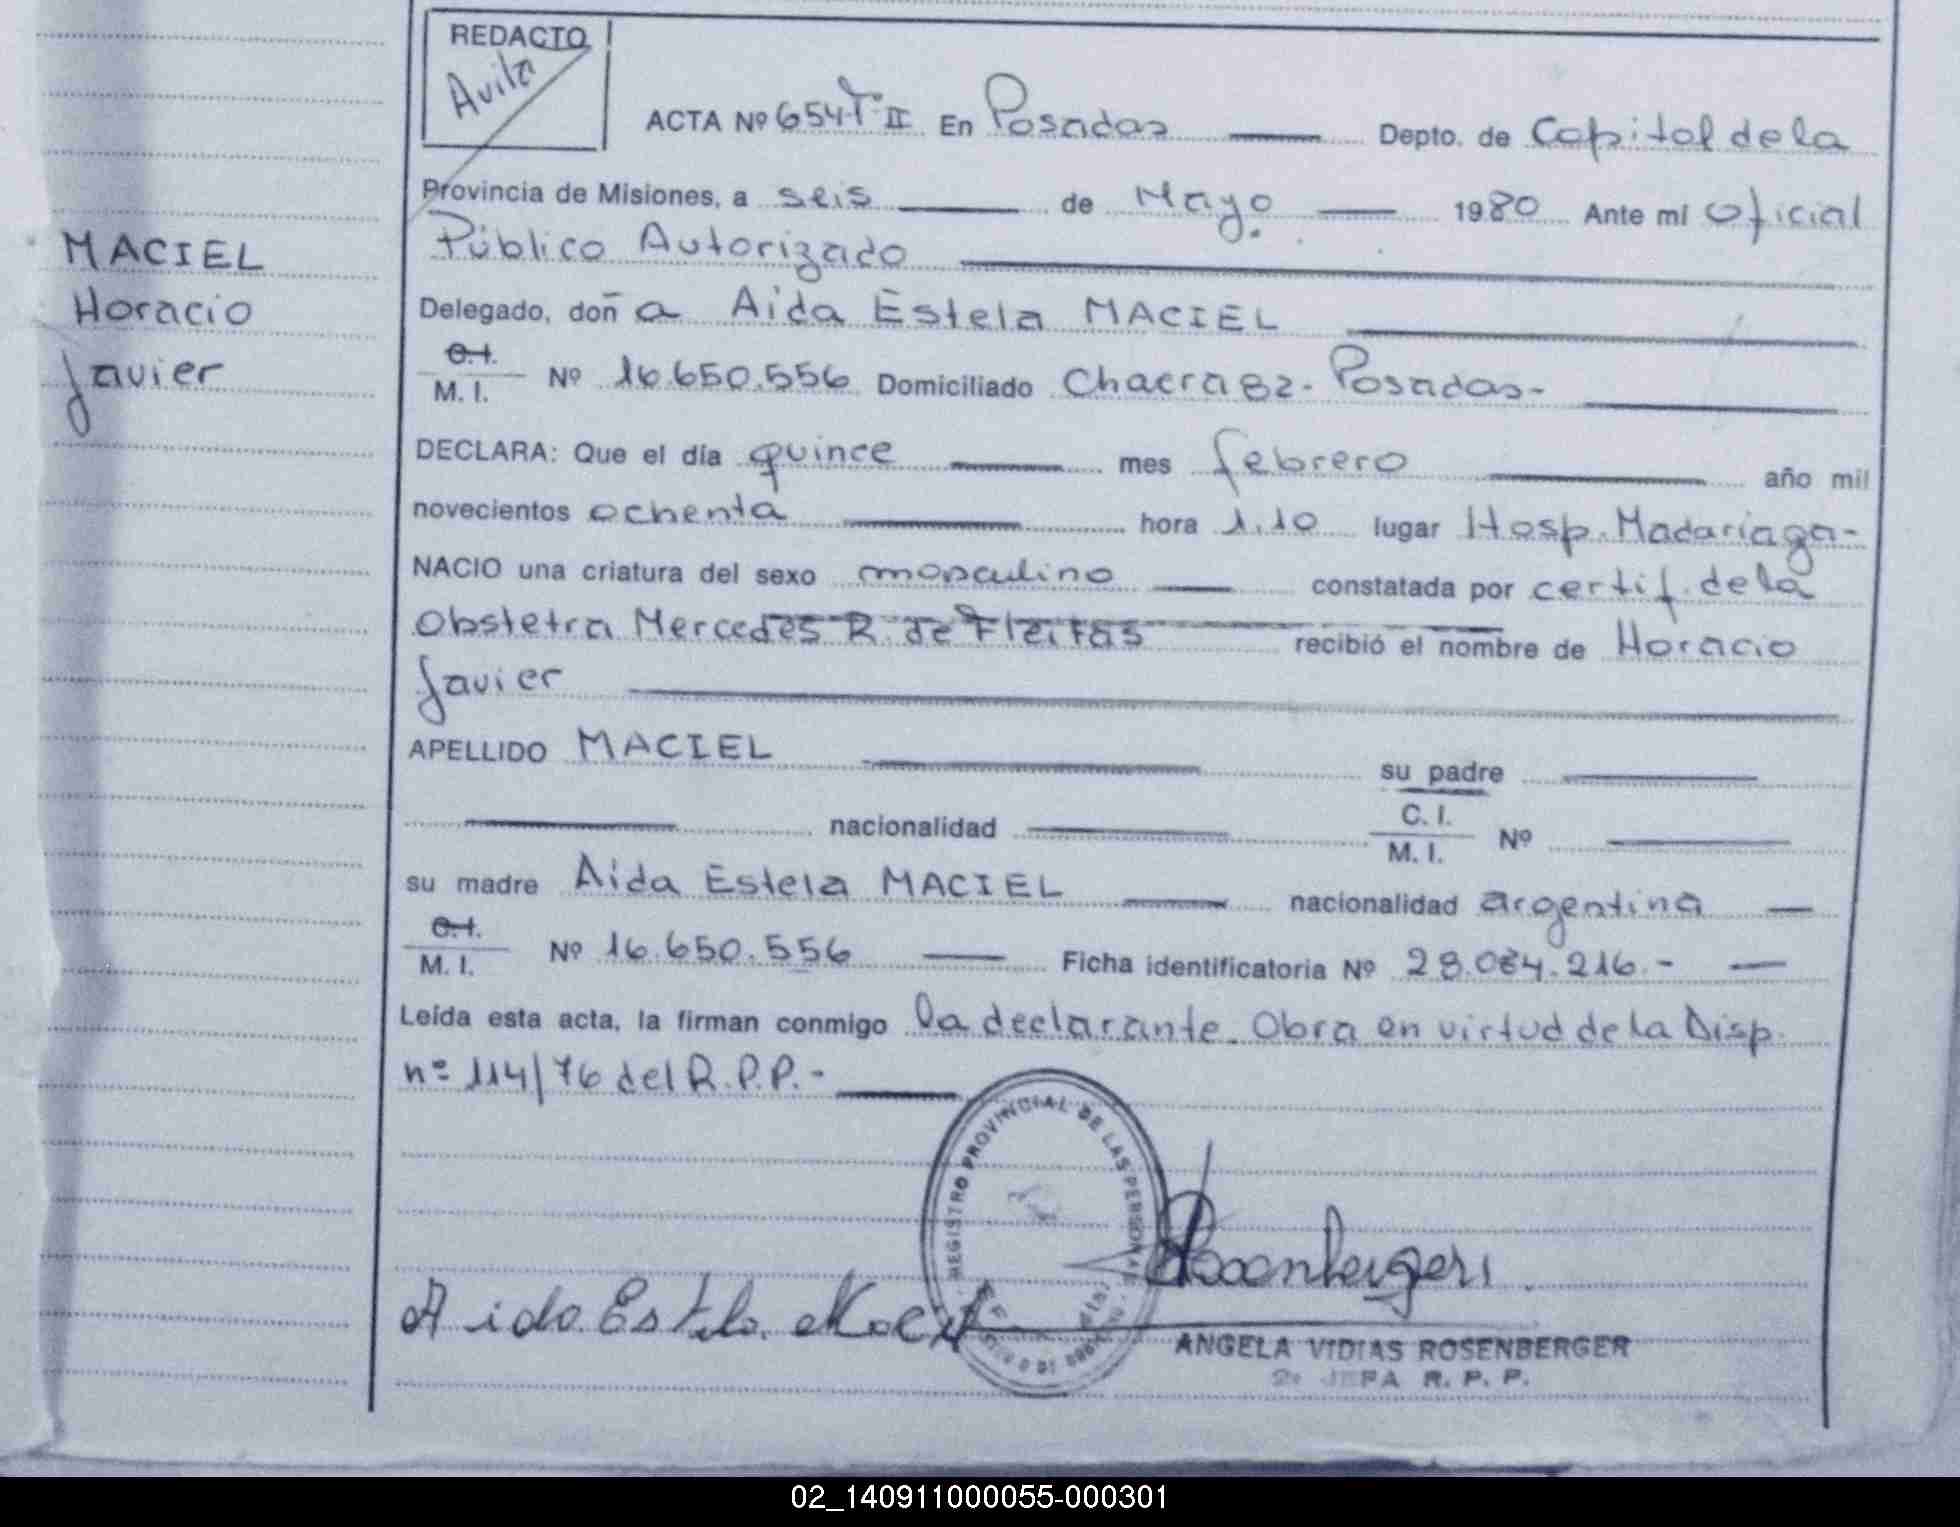 REDACTO
Avila
ACTA Nº 654 Tº II En Posadas Depto. de Capital de la
Provincia de Misiones, a seis de Mayo 1980 Ante mi Oficial
Público Autorizado
MACIEL
Horacio
Javier
Delegado, doña Aida Estela MACIEL
C.I.
M. I. Nº 16.650.556 Domiciliado Chacra 82 - Posadas -
DECLARA: Que el día quince mes febrero año mil
novecientos ochenta hora 1.10 lugar Hosp. Madariaga -
NACIO una criatura del sexo masculino constatada por certif. de la
Obstetra Mercedes R. de Fleitas recibió el nombre de Horacio
Javier
APELLIDO MACIEL su padre
nacionalidad C. I.
M. I. Nº
su madre Aida Estela MACIEL nacionalidad argentina
C.I.
M. I. Nº 16.650.556 Ficha identificatoria Nº 28.084.216.-
Leída esta acta, la firman conmigo la declarante. Obra en virtud de la Disp.
nº 114/76 del R.P.P.-
REGISTRO PROVINCIAL DE LAS PERSONAS
Aida Estela Maciel
Rosenberger
ANGELA VIDIAS ROSENBERGER
2º JEFA R. P. P.
02_140911000055-000301